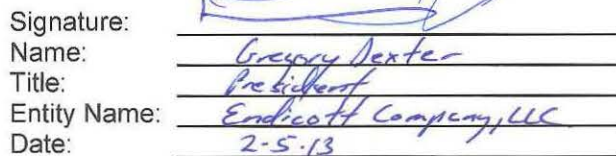 Signature:
Name: Gregory Dexter
Title: President
Entity Name: Endicott Company, LLC
Date: 2-5-13